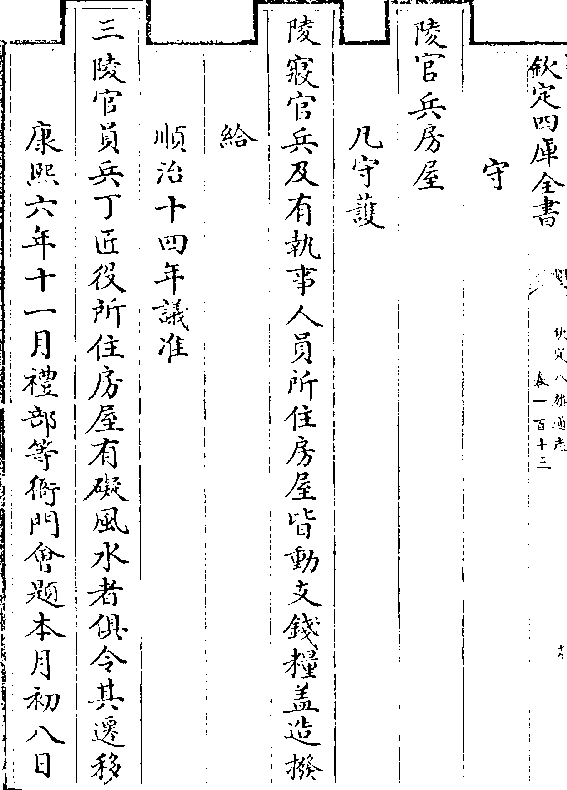 欽定四庫全書
欽定八旗通志
卷一百十三
守
陵官兵房屋
凡守護
陵寢官兵及有執事人員所住房屋皆動支錢糧盖造撥
給
順治十四年議准
三陵官員兵丁匠役所住房屋有礙風水者俱令其遷移
康熙六年十一月禮部等衙門會題本月初八日